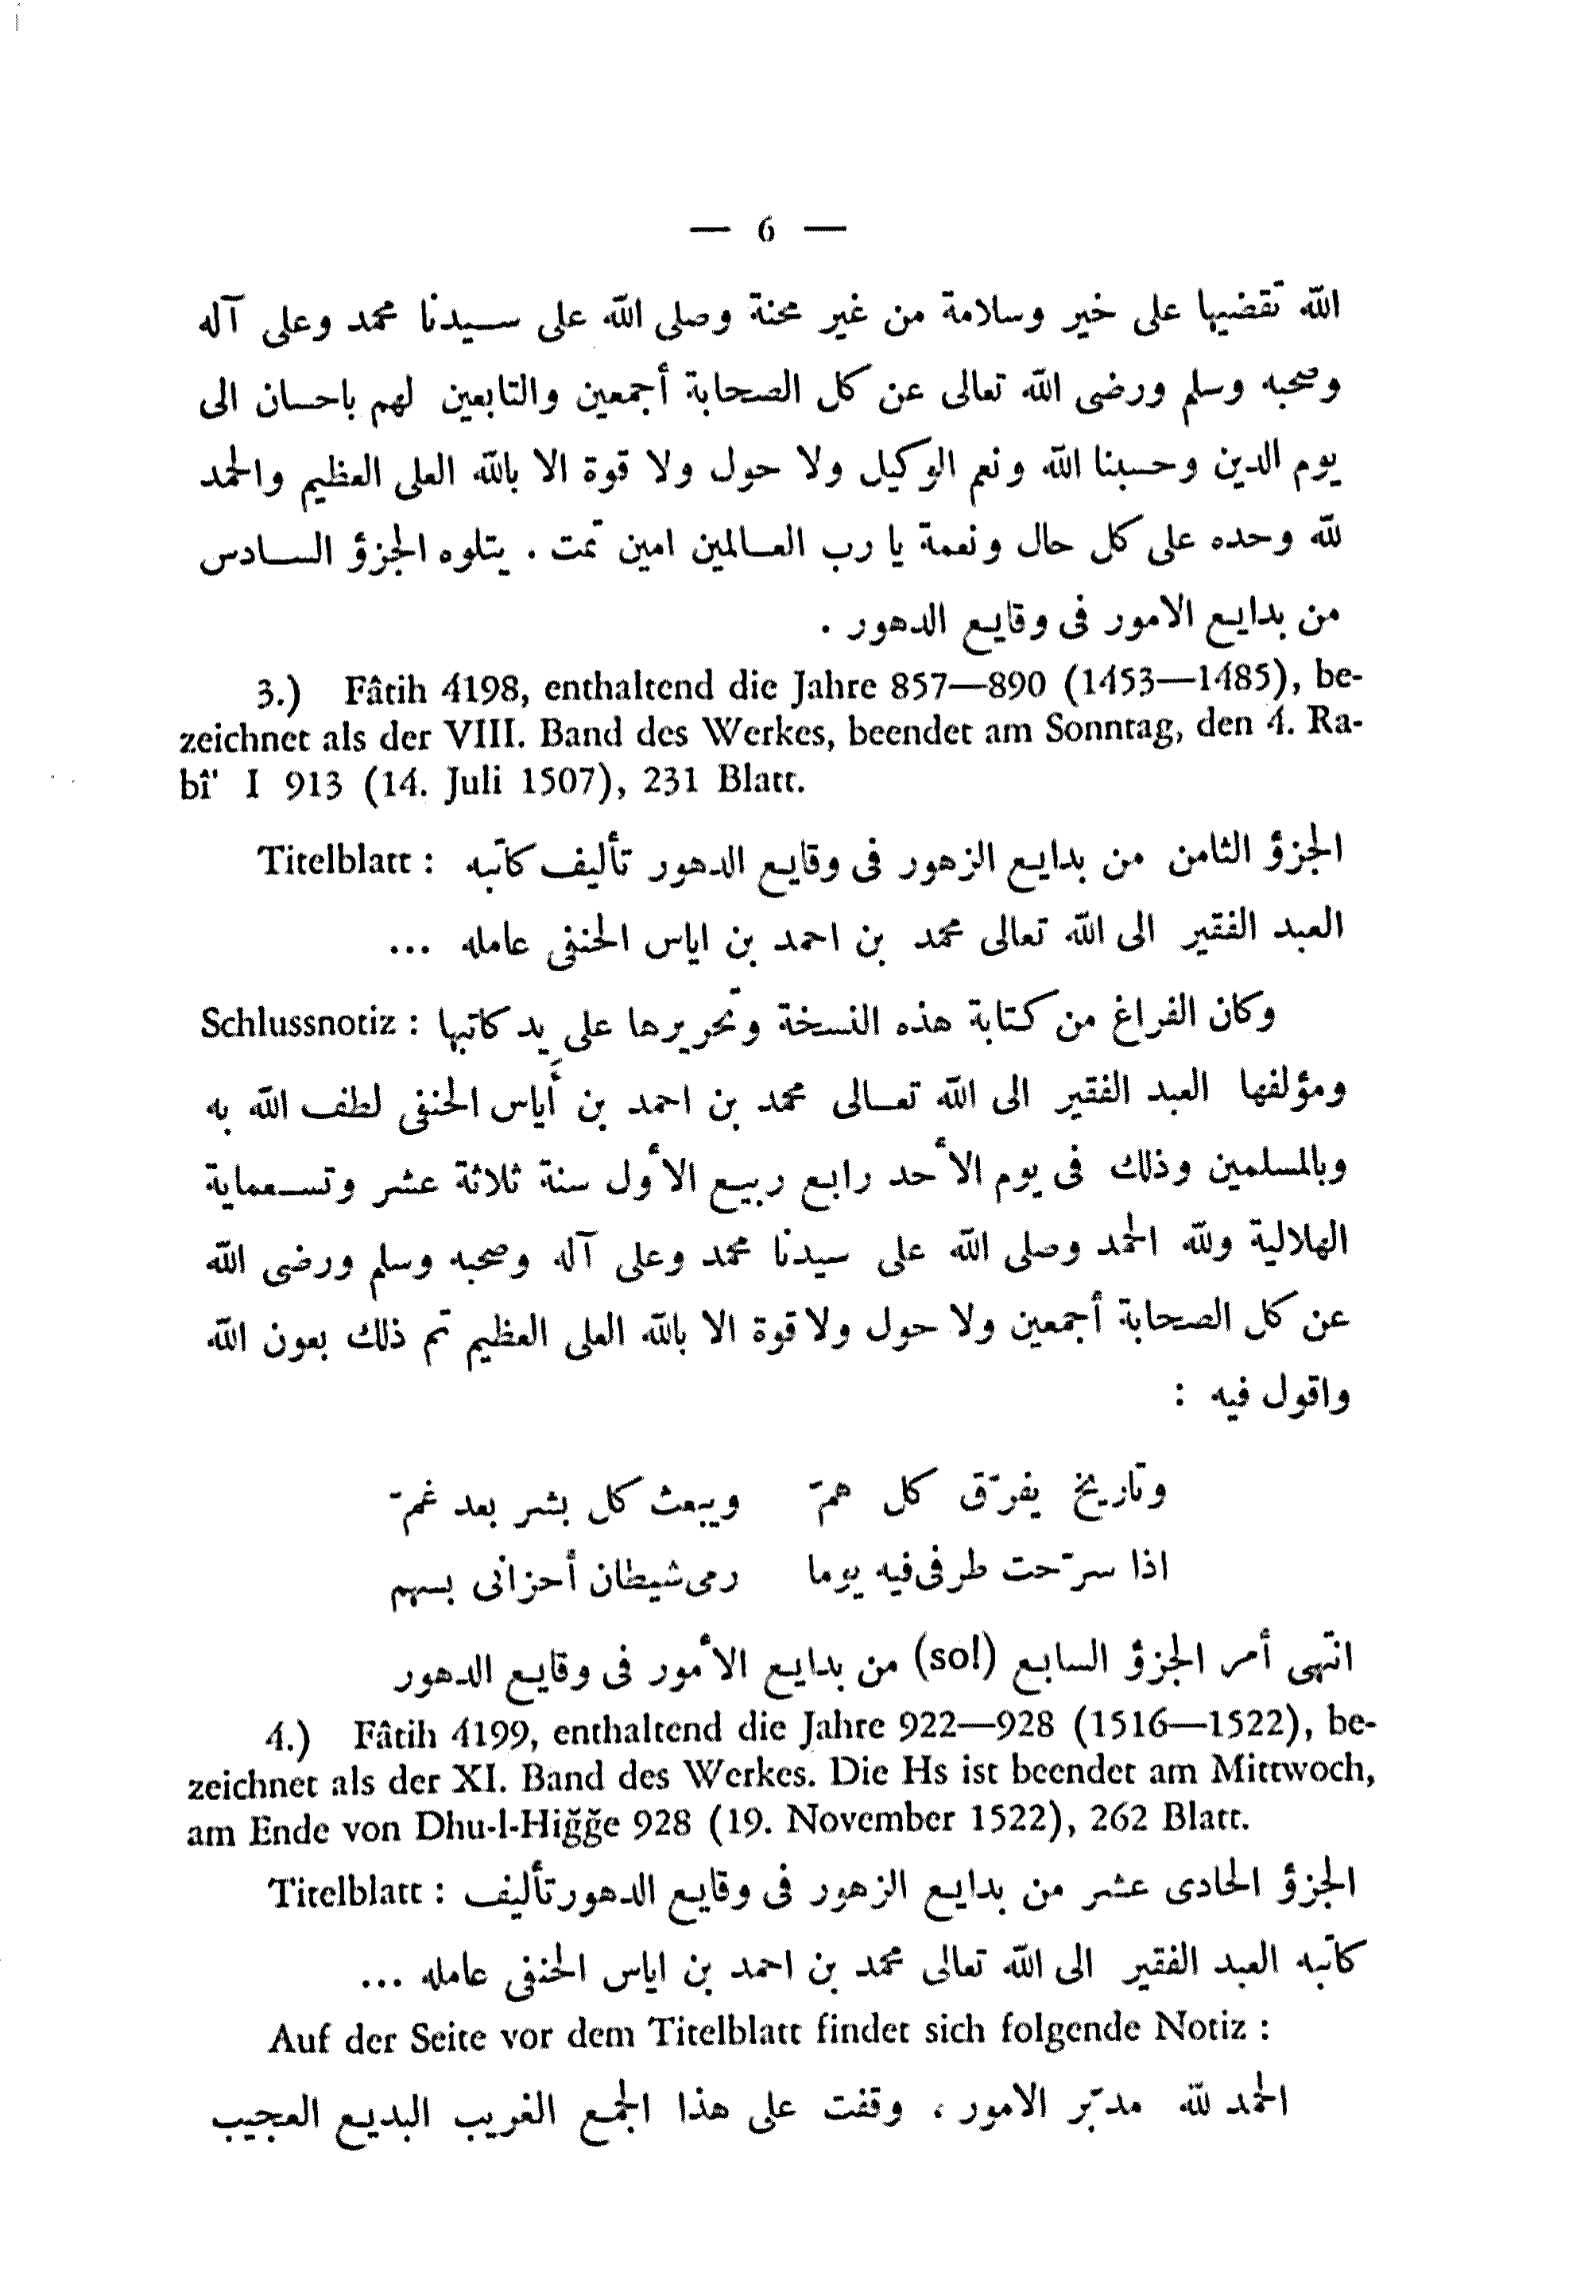 — 6 —
الله تقضيها على خير وسلامة من غير محنة وصلى الله على سيدنا محمد وعلى آله
وصحبه وسلم ورضى الله تعالى عن كل الصحابة أجمعين والتابعين لهم باحسان الى
يوم الدين وحسبنا الله ونعم الوكيل ولا حول ولا قوة الا بالله العلى العظيم والحمد
لله وحده على كل حال ونعمة يا رب العالمين امين تمت . يتلوه الجزؤ السادس
من بدايع الامور فى وقايع الدهور .
3.) Fâtih 4198, enthaltend die Jahre 857—890 (1453—1485), be-
zeichnet als der VIII. Band des Werkes, beendet am Sonntag, den 4. Ra-
bî' I 913 (14. Juli 1507), 231 Blatt.
Titelblatt : الجزؤ الثامن من بدايع الزهور فى وقايع الدهور تأليف كاتبه
العبد الفقير الى الله تعالى محمد بن احمد بن اياس الحنفى عامله ...
Schlussnotiz : وكان الفراغ من كتابة هذه النسخة وتحريرها على يد كاتبها
ومؤلفها العبد الفقير الى الله تعالى محمد بن احمد بن أَياس الحنفى لطف الله به
وبالمسلمين وذلك فى يوم الأحد رابع ربيع الأول سنة ثلاثة عشر وتسعماية
الهلالية ولله الحمد وصلى الله على سيدنا محمد وعلى آله وصحبه وسلم ورضى الله
عن كل الصحابة أجمعين ولا حول ولا قوة الا بالله العلى العظيم تم ذلك بعون الله
واقول فيه :
وتاريخ يفرّق كل همّ ويبعث كل بشر بعد غمّ
اذا سرّحت طرفى فيه يوما رمى شيطان أحزانى بسهم
انتهى أمر الجزؤ السابع (so!) من بدايع الأمور فى وقايع الدهور
4.) Fâtih 4199, enthaltend die Jahre 922—928 (1516—1522), be-
zeichnet als der XI. Band des Werkes. Die Hs ist beendet am Mittwoch,
am Ende von Dhu-l-Hiğğe 928 (19. November 1522), 262 Blatt.
Titelblatt : الجزؤ الحادى عشر من بدايع الزهور فى وقايع الدهور تأليف
كاتبه العبد الفقير الى الله تعالى محمد بن احمد بن اياس الحنفى عامله ...
Auf der Seite vor dem Titelblatt findet sich folgende Notiz :
الحمد لله مدبّر الامور ، وقفت على هذا الجمع الغريب البديع العجيب